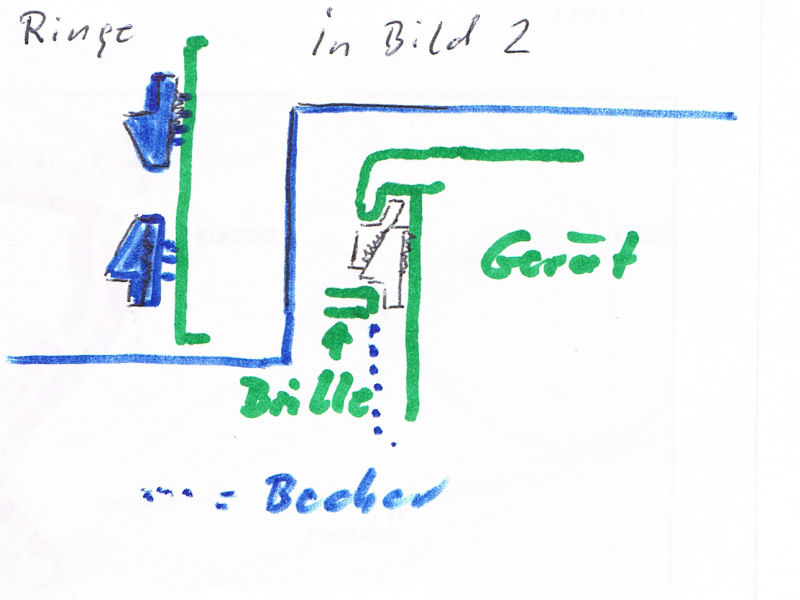 Ringe in Bild 2
Gerät
Brille
= Becher